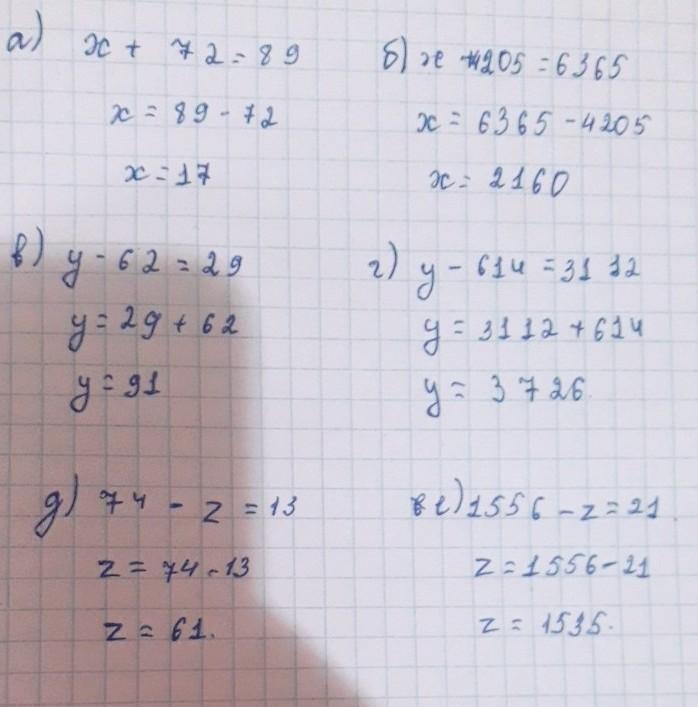 а) x + 72 = 89
x = 89 - 72
x = 17
б) x + 4205 = 6365
x = 6365 - 4205
x = 2160
в) y - 62 = 29
y = 29 + 62
y = 91
г) y - 614 = 3112
y = 3112 + 614
y = 3726.
д) 74 - z = 13
z = 74 - 13
z = 61.
е) 1556 - z = 21
z = 1556 - 21
z = 1535.